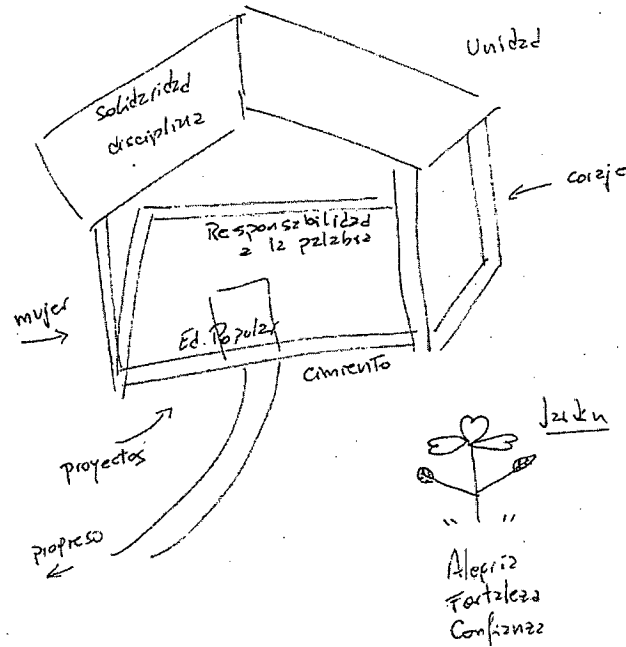 Unidad
Solidaridad
disciplina
coraje
Responsabilidad
a la palabra
mujer
Ed. Popular
cimiento
proyectos
Jardín
progreso
" "
Alegria
Fortaleza
Confianza